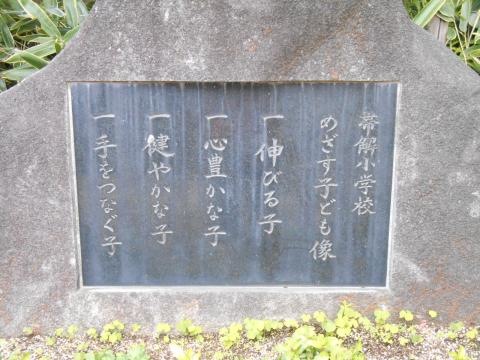 帯解小学校
めざす子ども像
一 伸びる子
一 心豊かな子
一 健やかな子
一 手をつなぐ子